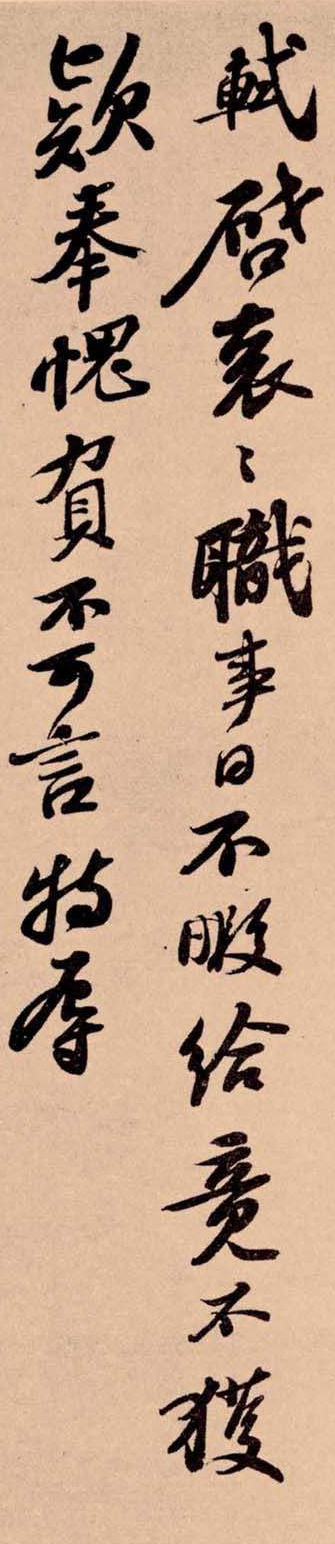 軾啓袁〻職事日不暇給竟不獲
款奉愧負不可言特辱